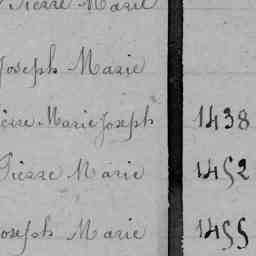 Pierre Marie
Joseph Marie
Pierre Marie Joseph 1438
Pierre Marie 1452
Joseph Marie 1455